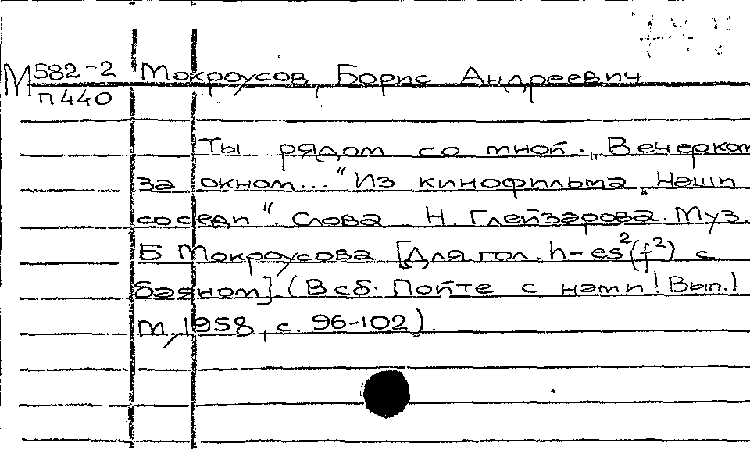 М 582-2 Мокроусов, Борис Андреевич
п440
Ты рядом со мной. „Вечерком
за окном..." Из кинофильма „Наши
соседи". Слова Н. Глейзарова. Муз.
Б Мокроусова [Для гол. h-es²(f²) с
баяном]. (В сб. Пойте с нами! Вып. 1
М, 1958, с. 96-102)